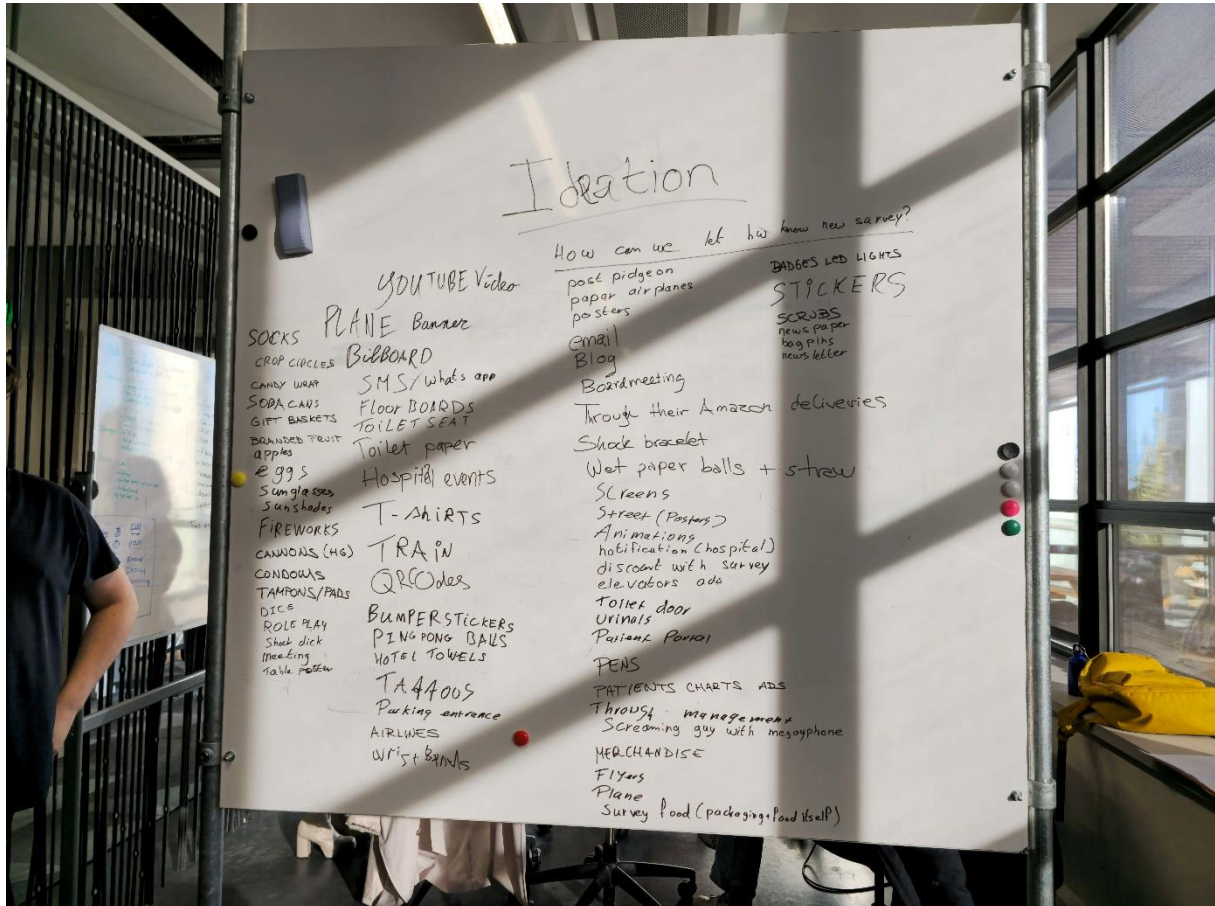 Ideation
How can we let hw know new survey?
SOCKS
CROP CIRCLES
CANDY WRAP
SODA CANS
GIFT BASKETS
BRANDED FRUIT
apples
eggs
Sunglasses
Sunshades
FIREWORKS
CANNONS (HG)
CONDOWS
TAMPONS/PADS
DICE
ROLE PLAY
Shock dick
Meeting
Table poster
YOUTUBE Video
PLANE Banner
BillBOARD
SMS/Whats app
Floor BOARDS
TOILET SEAT
Toilet paper
Hospital events
T-ShiRTS
TRAiN
QRCOdes
BUMPERSTICKERS
PINGPONG BALLS
HOTEL TOWELS
Parking entrance
AIRLINES
Wrist Bands
post pidgeon
papar airplanes
posters
email
Blog
Boardmeeting
Through their Amazon deliveries
Shock bracelet
Wet paper balls + straw
Screens
Street (Posters)
Animations
notification (hospital)
discount with survey
elevators ads
Toilet door
Urinals
Patient Portal
PENS
PATIENTS CHARTS ADS
Through management
Screaming guy with megayphone
MERCHANDISE
Flyers
Plane
Survey food (packaging+food itself)
BADGES LED LIGHTS
STICKERS
SCRUBS
news paper
bag pins
newsletter